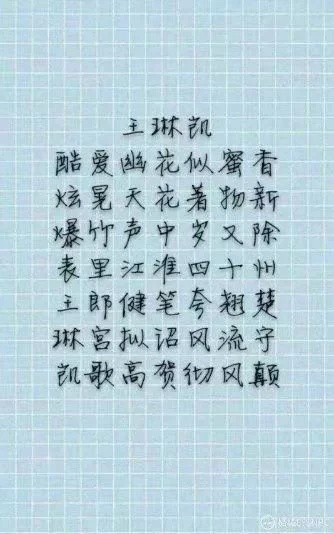 王琳凯
酷爱幽花似蜜香
炫晃天花著物新
爆竹声中岁又除
表里江淮四十州
王郎健笔夸翘楚
琳宫拟诏风流守
凯歌高贺彻风颠